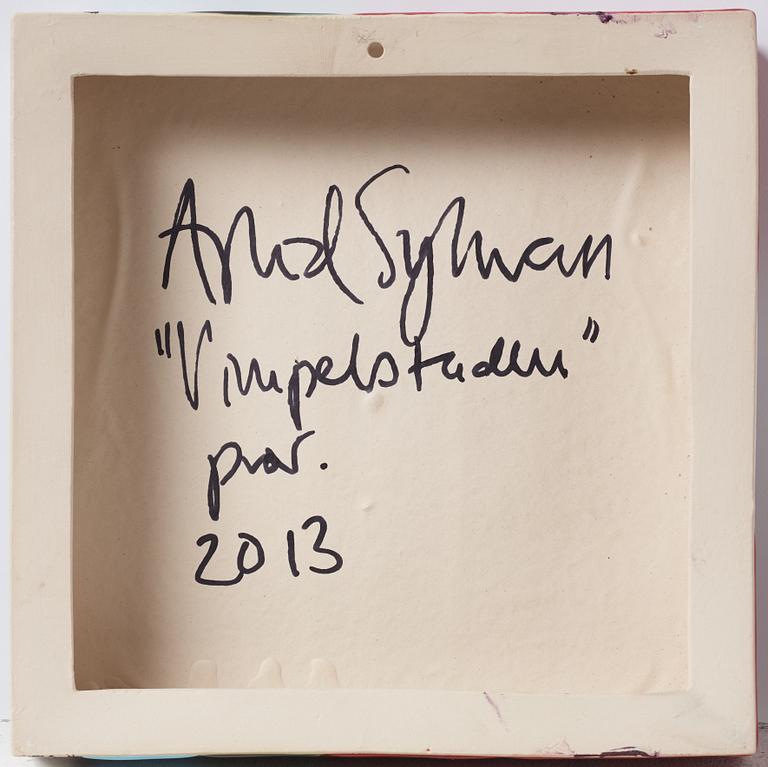 Arvid Sylwan
"Vimpelstaden"
prov.
2013